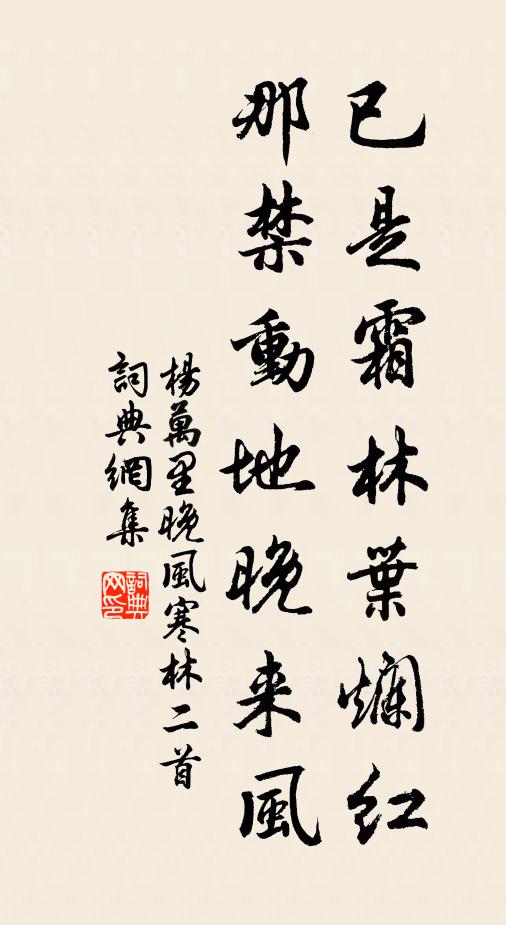 已是霜林葉爛紅
那禁動地晚来風
楊萬里晚風寒林二首
詞典網集
詞典
网印